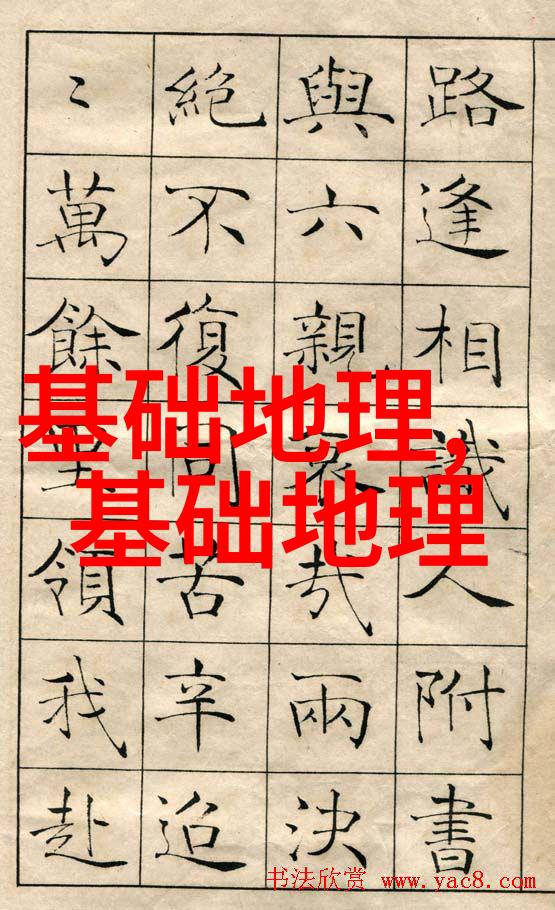 路逢相識人附書
與六親哀哉兩決
絕不復同苦辛迢
〻萬餘里領我赴
基础地理,
基础地理
书法欣赏 www.yac8.com